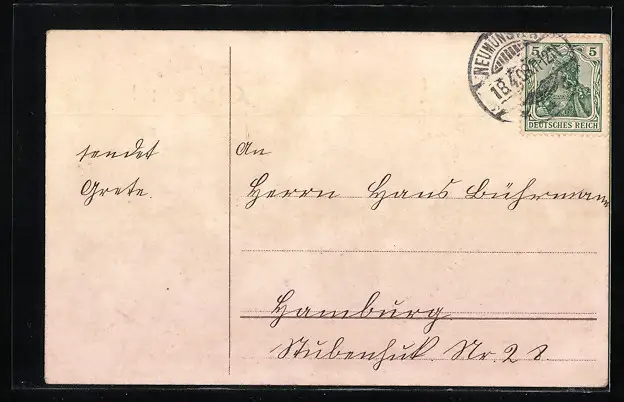 NEUMÜNSTER
18.4.
5 5
DEUTSCHES REICH
sendet
Grete.
An
Herrn Hans Bührmann
Hamburg.
Stubenhuk. Nr. 28.